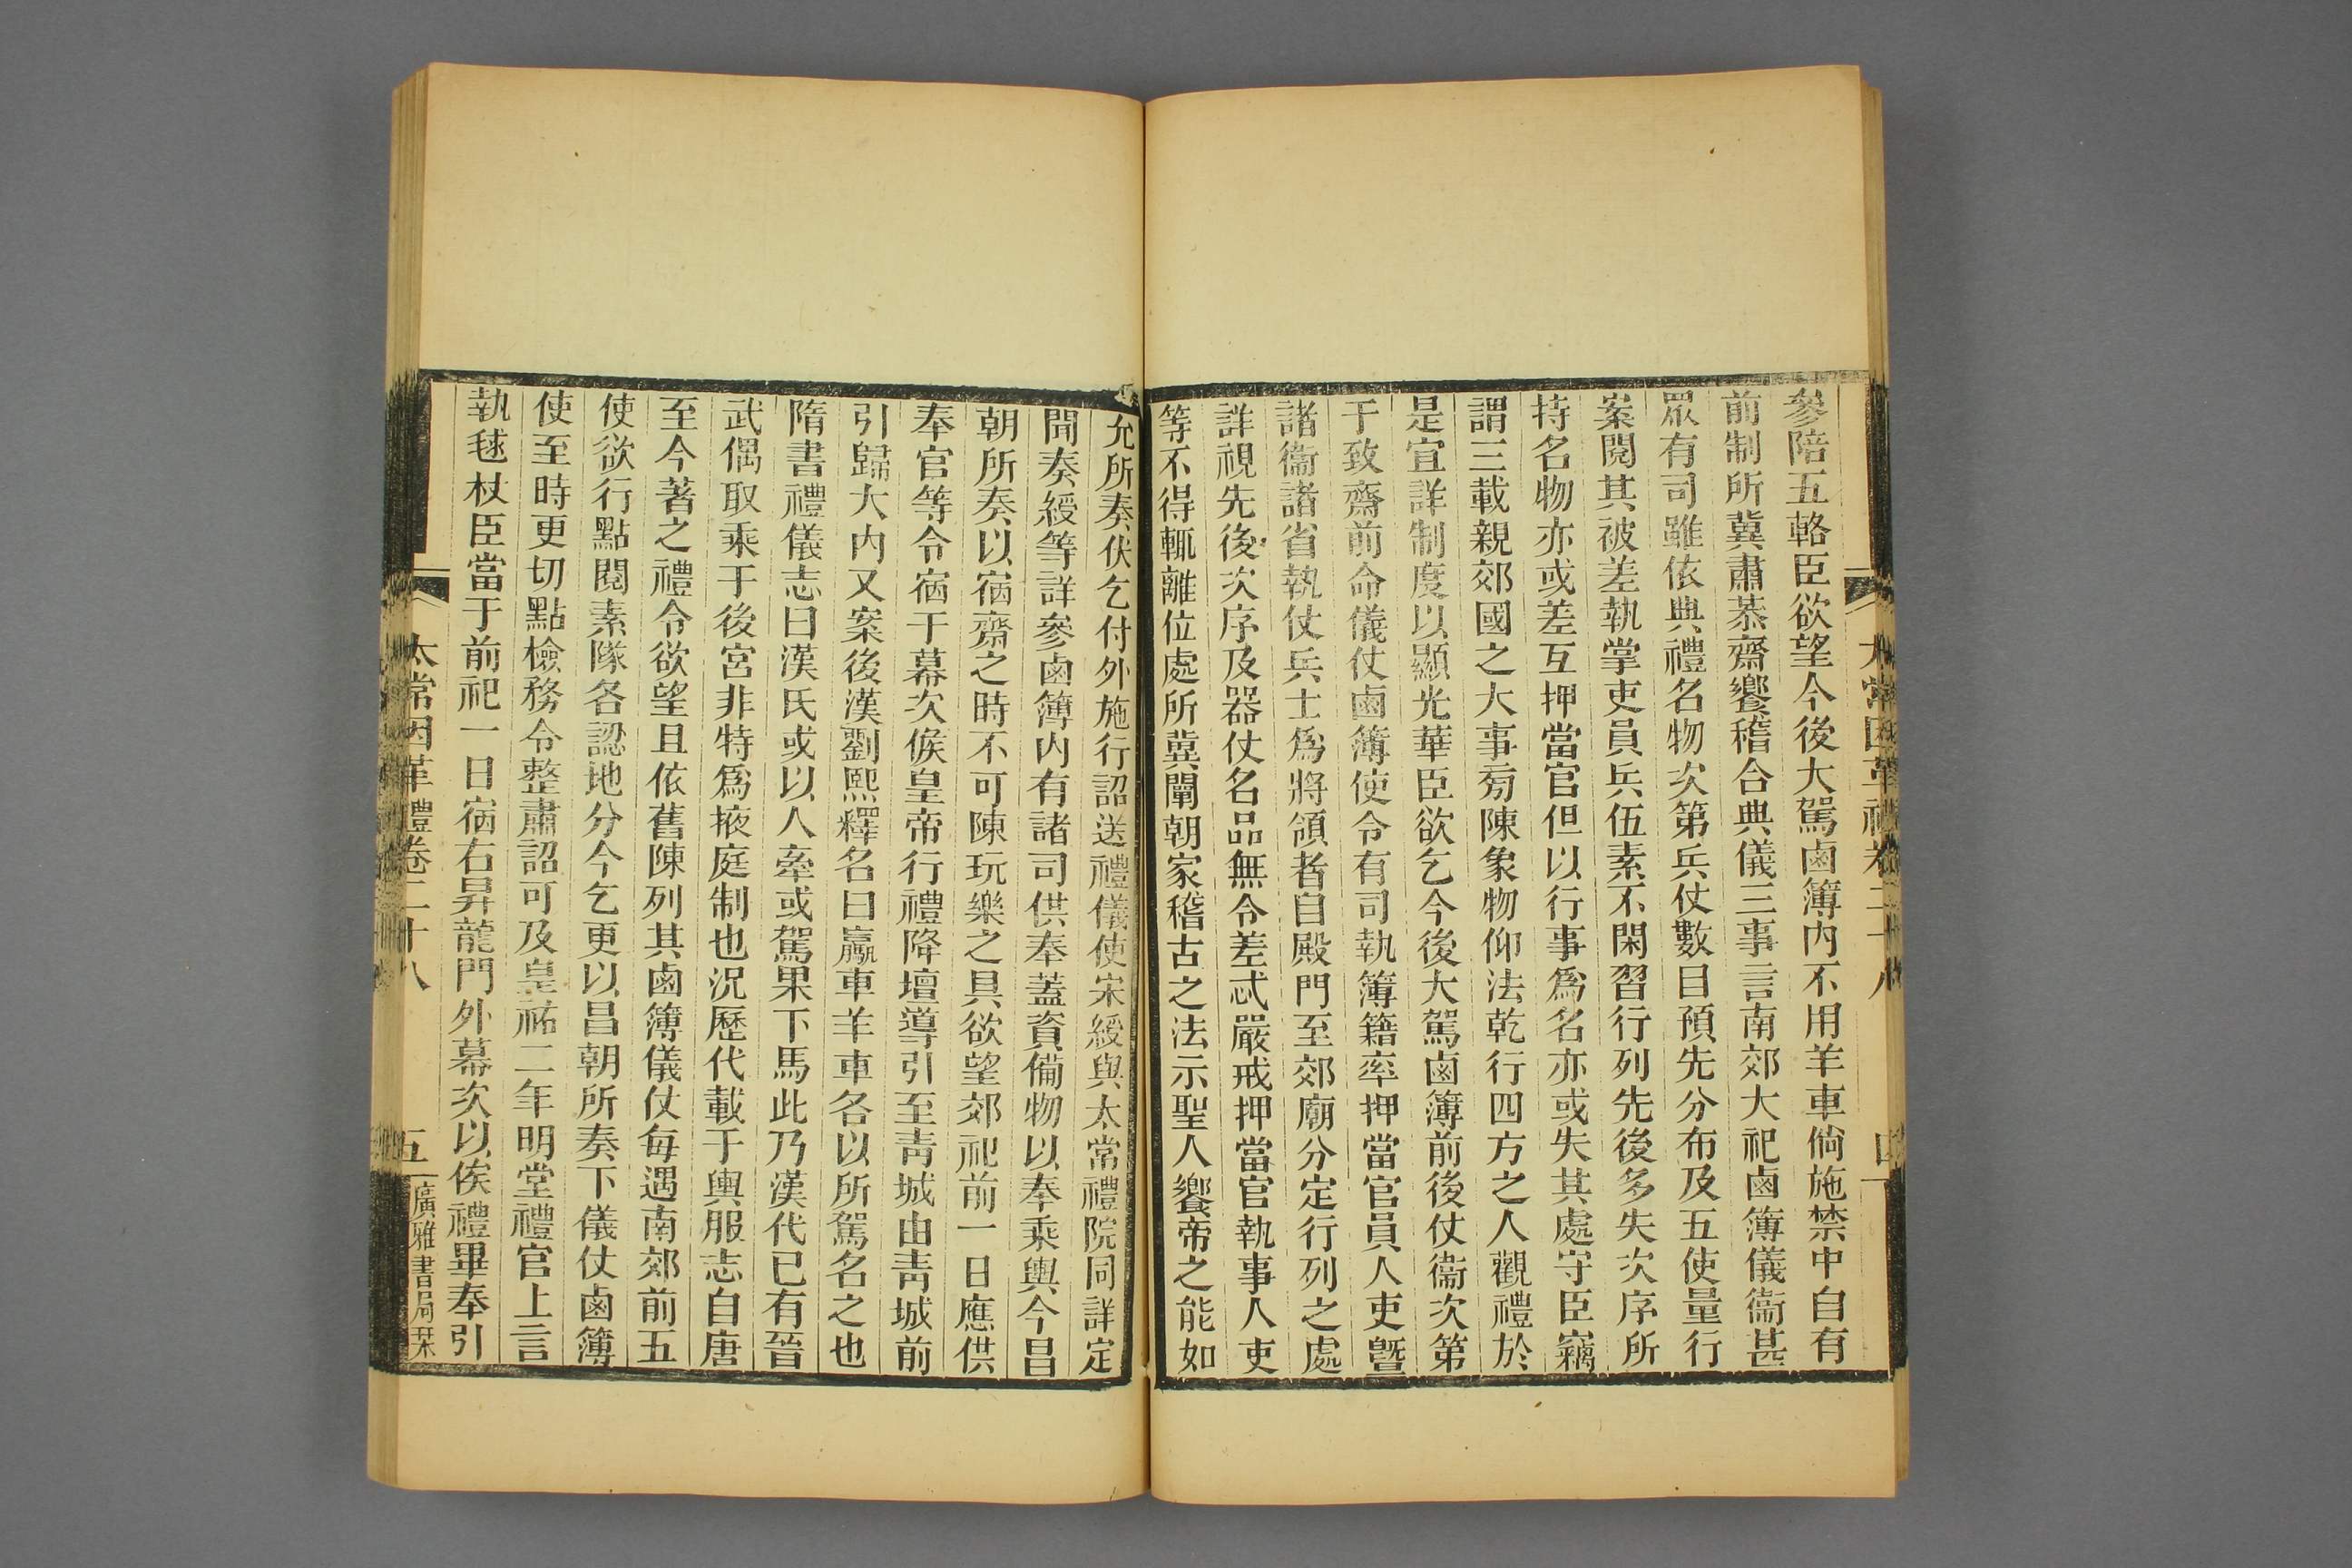 太常因革禮卷二十八
四
參陪五輅臣欲望今後大駕鹵簿內不用羊車倘施禁中自有
前制所冀肅恭齋饗稽合典儀三事言南郊大祀鹵簿儀衞甚
眾有司雖依典禮名物次第兵仗數目預先分布及五使量行
案閱其被差執掌吏員兵伍素不閑習行列先後多失次序所
持名物亦或差互押當官但以行事爲名亦或失其處守臣竊
謂三載親郊國之大事旉陳象物仰法乾行四方之人觀禮於
是宜詳制度以顯光華臣欲乞今後大駕鹵簿前後仗衞次第
于致齋前命儀仗鹵簿使令有司執簿籍率押當官員人吏曁
諸衞諸省執仗兵士爲將領者自殿門至郊廟分定行列之處
詳視先後次序及器仗名品無令差忒嚴戒押當官執事人吏
等不得輒離位處所冀闡朝家稽古之法示聖人饗帝之能如
允所奏伏乞付外施行詔送禮儀使宋綬與太常禮院同詳定
聞奏綬等詳參鹵簿內有諸司供奉蓋資備物以奉乘輿今昌
朝所奏以宿齋之時不可陳玩樂之具欲望郊祀前一日應供
奉官等令宿于幕次候皇帝行禮降壇導引至靑城由靑城前
引歸大內又案後漢劉熙釋名曰羸車羊車各以所駕名之也
隋書禮儀志曰漢氏或以人牽或駕果下馬此乃漢代已有晉
武偶取乘于後宮非特爲掖庭制也況歷代載于輿服志自唐
至今著之禮令欲望且依舊陳列其鹵簿儀仗每遇南郊前五
使欲行點閱素隊各認地分今乞更以昌朝所奏下儀仗鹵簿
使至時更切點檢務令整肅詔可及皇祐二年明堂禮官上言
執毬杖臣當于前祀一日宿右昇龍門外幕次以俟禮畢奉引
太常因革禮卷二十八
五
廣雅書局栞